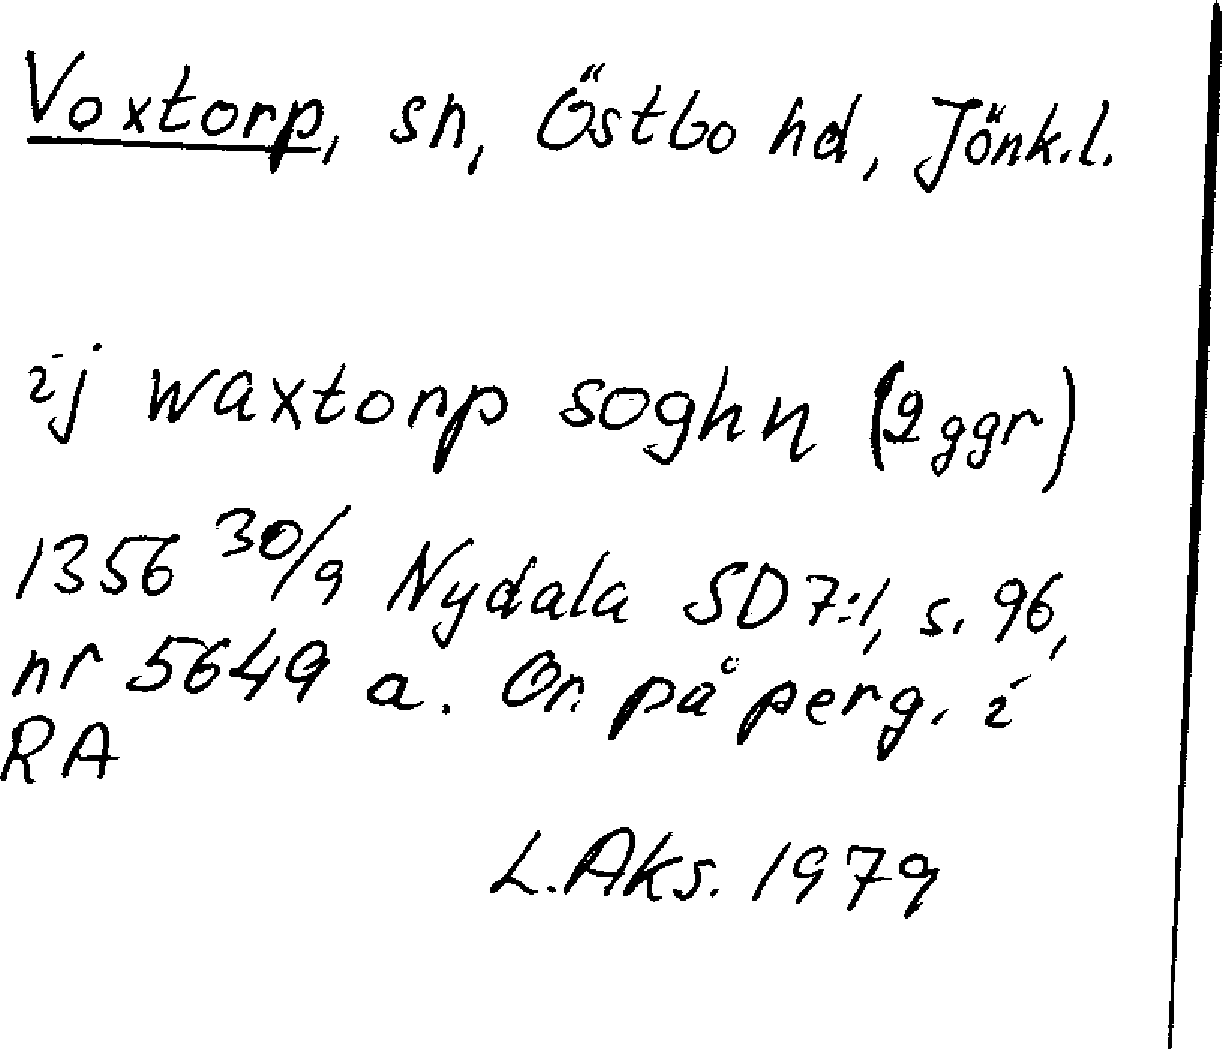 Voxtorp, sn, Östbo hd, Jönk.l.
ij waxtorp soghn (2 ggr)
1356 30/9 Nydala SD 7:1, s. 96,
nr 5649 a. Or. på perg. i
RA
L.Aks. 1979